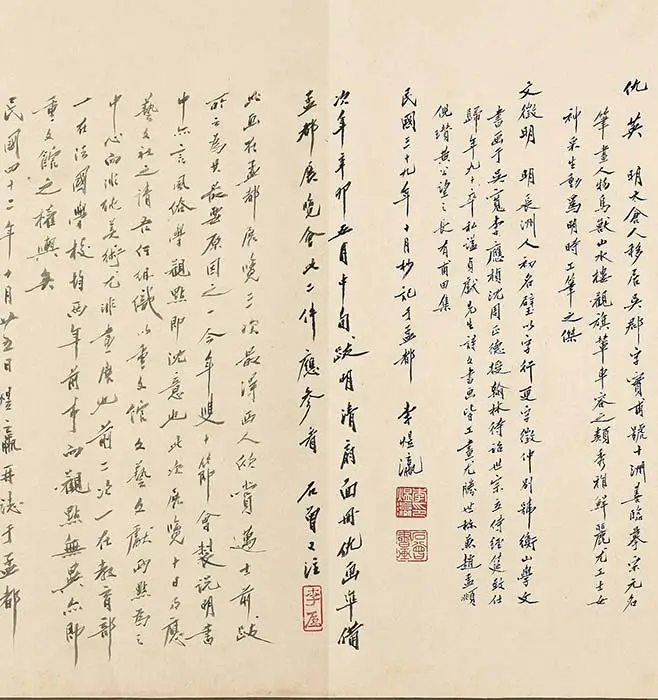 仇英 明太倉人移居吳郡字實甫號十洲善臨摹宋元名
筆畫人物鳥獸山水樓觀旗輦車容之類秀雅鮮麗尤工士女
神采生動為明時工筆之傑
文徵明 明長洲人初名璧以字行更字徵仲別號衡山學文
書畫于吳寬李應禎沈周正德授翰林待詔世宗立侍經筵致仕
歸年九十卒私諡貞獻先生詩文書畫皆工畫尤勝世稱兼趙孟頫
倪瓚黃公望之長有甫田集
民國三十九年十月抄記于孟都 李煜瀛
次年辛卯五月中旬跋明清扇面冊仇畫準備
孟都展覽會九二件應參看 石曾又注
李屋
此畫在孟都展覽三次最得西人欣賞邁士前跋
所云為其最要原因之一今年雙十節會製說明書
中亦言風俗學觀點即沈意也此次展覽十日為應
藝文社之請吾何組織以重文館文藝文獻兩點為之
中心而非純美術尤非畫展也前二次一在教育部
一在法國學校均兩年前事而觀點無異亦即
重文館之權輿矣
民國四十二年十月廿五日煜瀛再誌于孟都